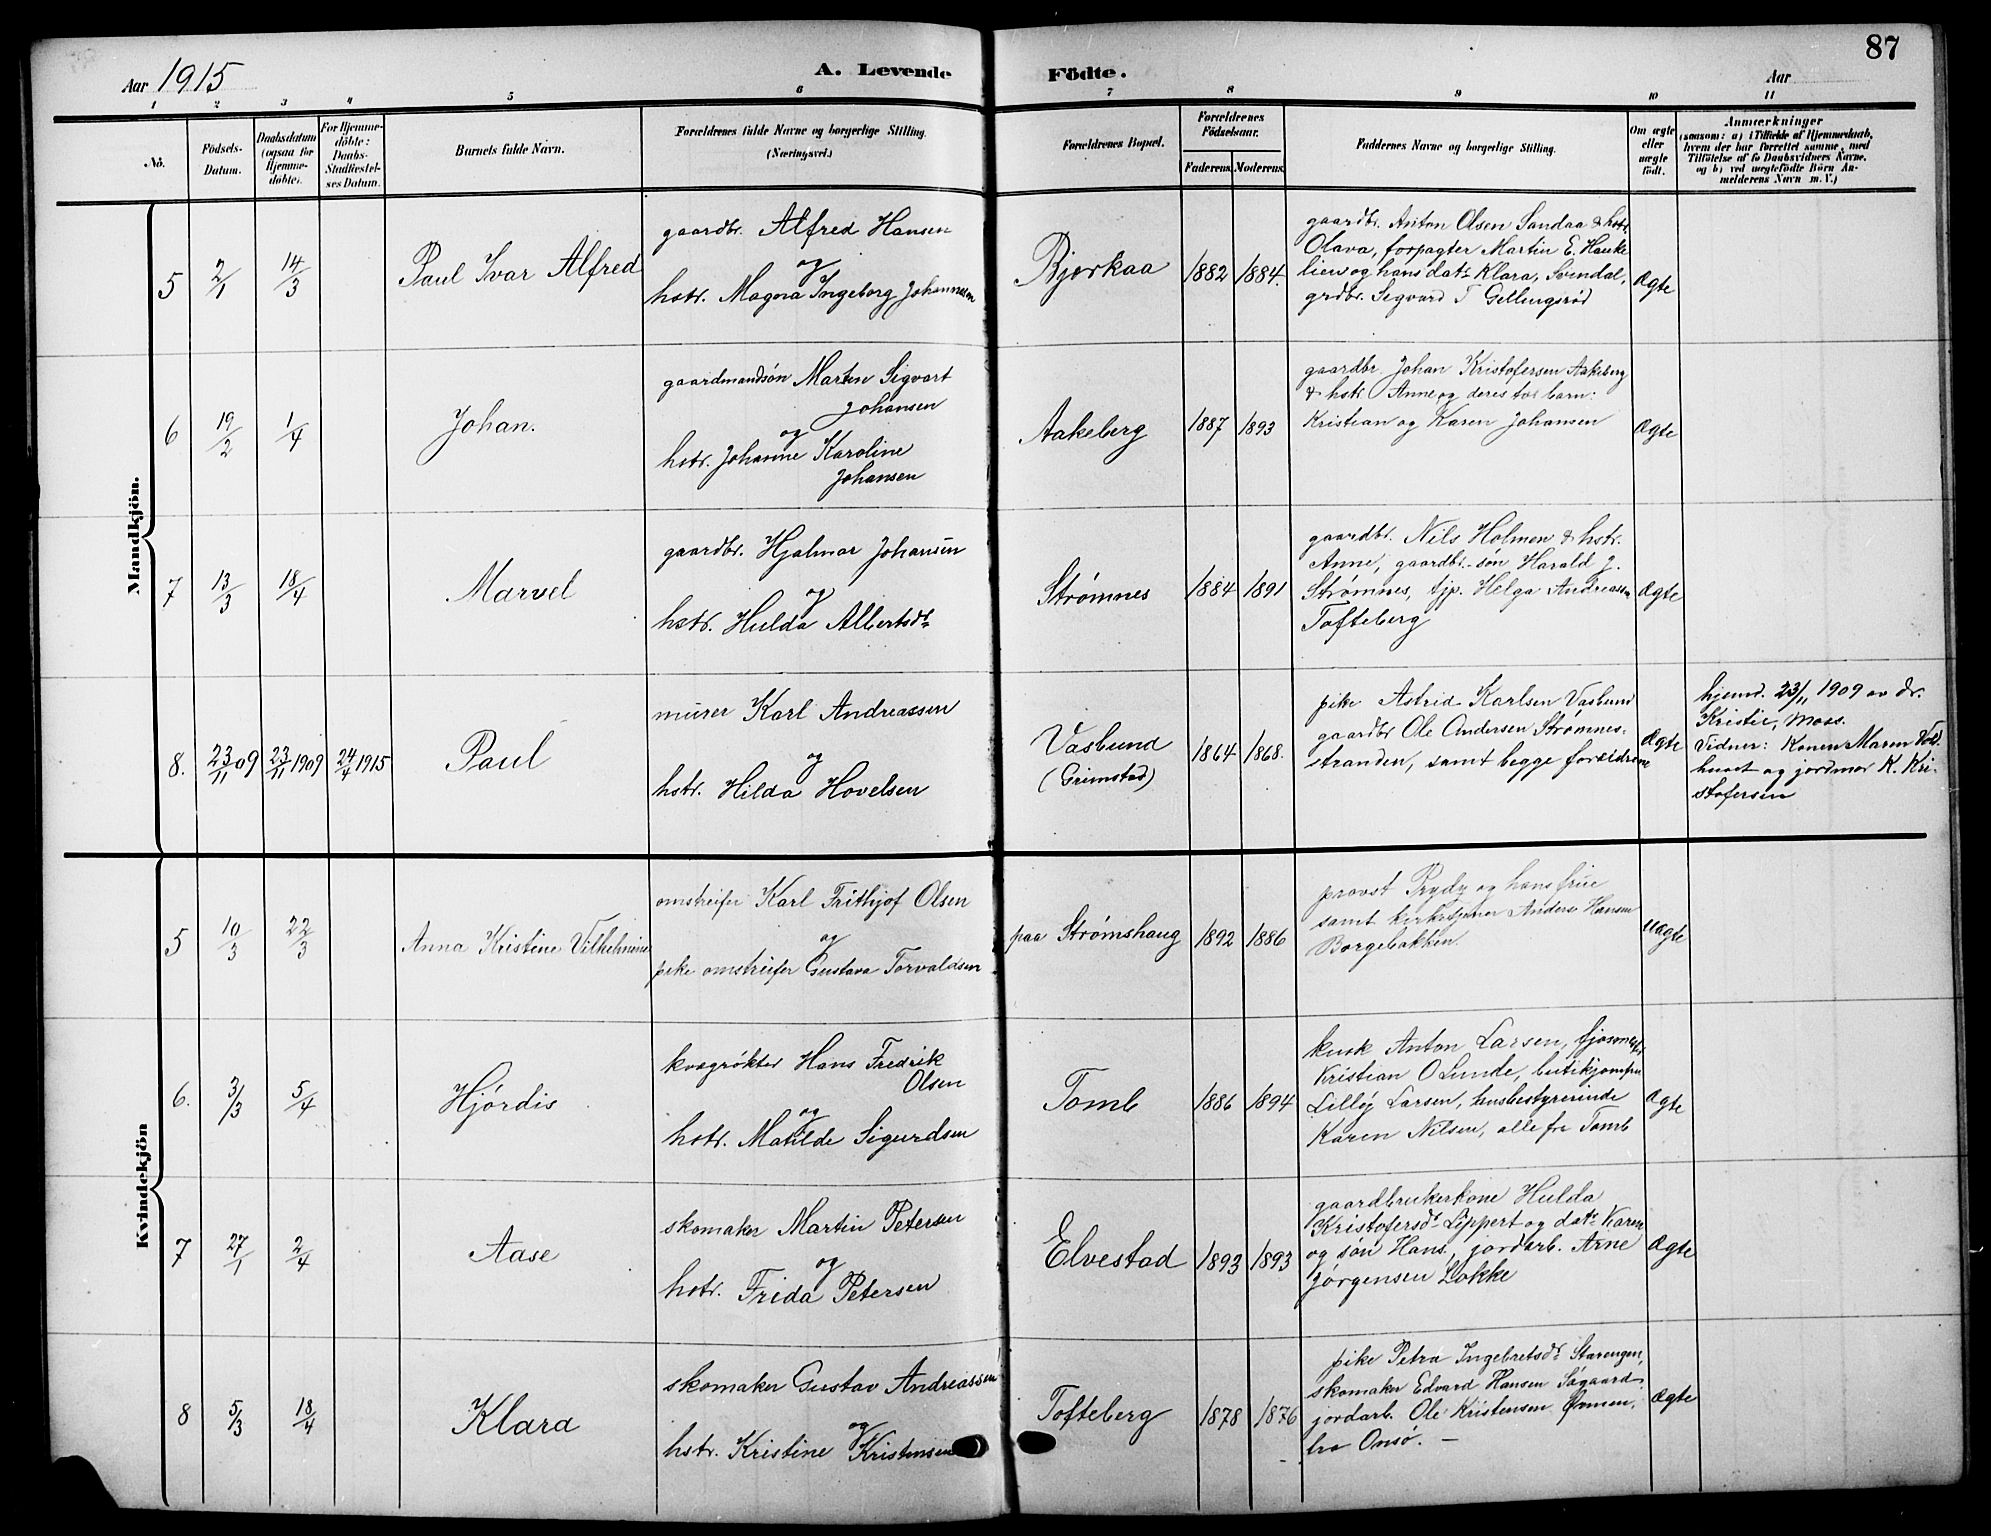 87
Aar 1915 A. Levende Födte. Aar
1 2 3 4 5 6 7 8 9 10 11
Nô. Födsels-Datum. Daabsdatum (ogsaa for Hjemme-döbte). For Hjemme-döbte: Daabs-Stadfæstel-ses Datum. Barnets fulde Navn. Forældrenes fulde Navne og borgerlige Stilling. (Næringsvei.) Forældrenes Bopæl. Forældrenes Födselsaar. Faderens. Moderens. Faddernes Navne og borgerlige Stilling. Om ægte eller uægte födt. Anmærkninger (saasom: a) i Tilfælde af Hjemmedaab, hvem der har forrettet samme, med Tilföielse af to Daabsvidners Navne, og b) ved uægtefödte Börn An-melderens Navn m. V.)
Mandkjön.
5 2/1 14/3 Paul Ivar Alfred
gaardbr. Alfred Hansen
og
hstr. Magna Ingeborg Johannesen
Bjørkaa 1882 1884.
gaardbr. Anton Olsen Sandaa & hstr.
Olava, forpagter Martin E. Hauke
lien og hans dat. Klara, Svindal,
grdbr. Sigvard T Gellungsrød
Ægte
6 19/2 1/4 Johan.
gaardmandsøn Martin Sigvart
Johansen
og
hstr. Johanne Karoline
Johansen
Aakeberg 1887 1893
gaardbr. Johan Kristofersen Aakeberg
& hstr Anne og deres to barn:
Kristian og Karen Johansen
Ægte
7 13/3 18/4 Marvel
gaardbr. Hjalmar Johansen
og
hstr. Hulda Albertsdtr
Strømnes 1884 1891
gaardbr. Nils Holmen & hstr.
Anne, gaardbr. søn Harald J.
Strømnes, tjp. Helga Andreassen
Tofteberg
Ægte
8. 23/11 09 23/11 1909 24/4 1915 Paul
murer Karl Andreassen
og
hstr. Hilda Hovelsen
Vasbund
(Grimstad)
1864 1868.
pike Astrid Karlsen Vasbund
gaardbr Ole Andersen Strømnes-
stranden, samt begge forældrene
Ægte
hjemd. 23/11 1909 av dr.
Kristie, Moss.
Vidner: Konen Maren
og jordmor K. Kri-
stofersen
Kvindekjön
5 10/3 22/3 Anna Kristine Vilhelmine
omstreifer Karl Frithjof Olsen
og
pike omstreifer Gustava Torvaldsen
paa Strømshaug 1892 1886
provst Prydz og hans frue
samt kirketjener Anders Hansen
Borgebakken.
Uægte
6. 3/3 5/4 Hjørdis
kvægrøkter Hans Fredrik
Olsen
og
hstr. Matilde Sigurdsen
Tomb 1886 1894
kusk Anton Larsen,
Kristian O Lunde, butikjomfru
Lilly Larsen, husbestyrerinde
Karen Nilsen, alle fra Tomb
Ægte
7 27/1 2/4 Aase
skomaker Martin Petersen
og
hstr. Frida Petersen
Elvestad 1893 1893
gaardbrukerkone Hulda
Kristofersdtr Lippert og datr Karen
og søn Hans, jordarb. Arne
Jørgensen Løkke
Ægte
8 5/3 18/4 Klara
skomaker Gustav Andreassen
og
hstr. Kristine Kristensen
Tofteberg 1878 1876
pike Petra Ingebretsdtr Starengen,
skomaker Edvard Hansen Søgaard,
jordarb. Ole Kristensen
fra Onsø. —
Ægte